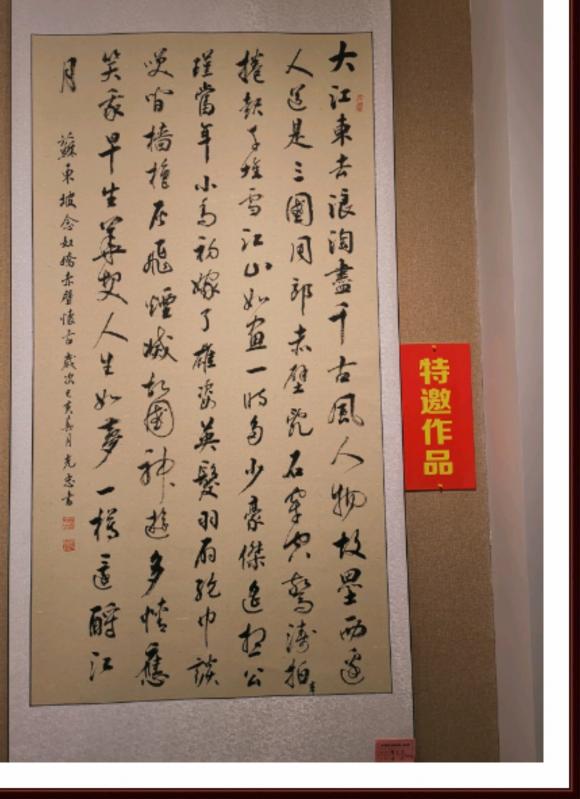 大江東去浪淘盡千古風人物故壘西邊
人道是三國周郎赤壁乱石穿空驚濤拍岸
捲起千堆雪江山如畫一時多少豪傑遙想公
瑾當年小喬初嫁了雄姿英髮羽扇綸巾談
笑間檣櫓灰飛煙滅故國神遊多情應
笑我早生華发人生如夢一樽還酹江
月
蘇東坡念奴嬌赤壁懷古 歲次己亥春月 忠書
特邀作品